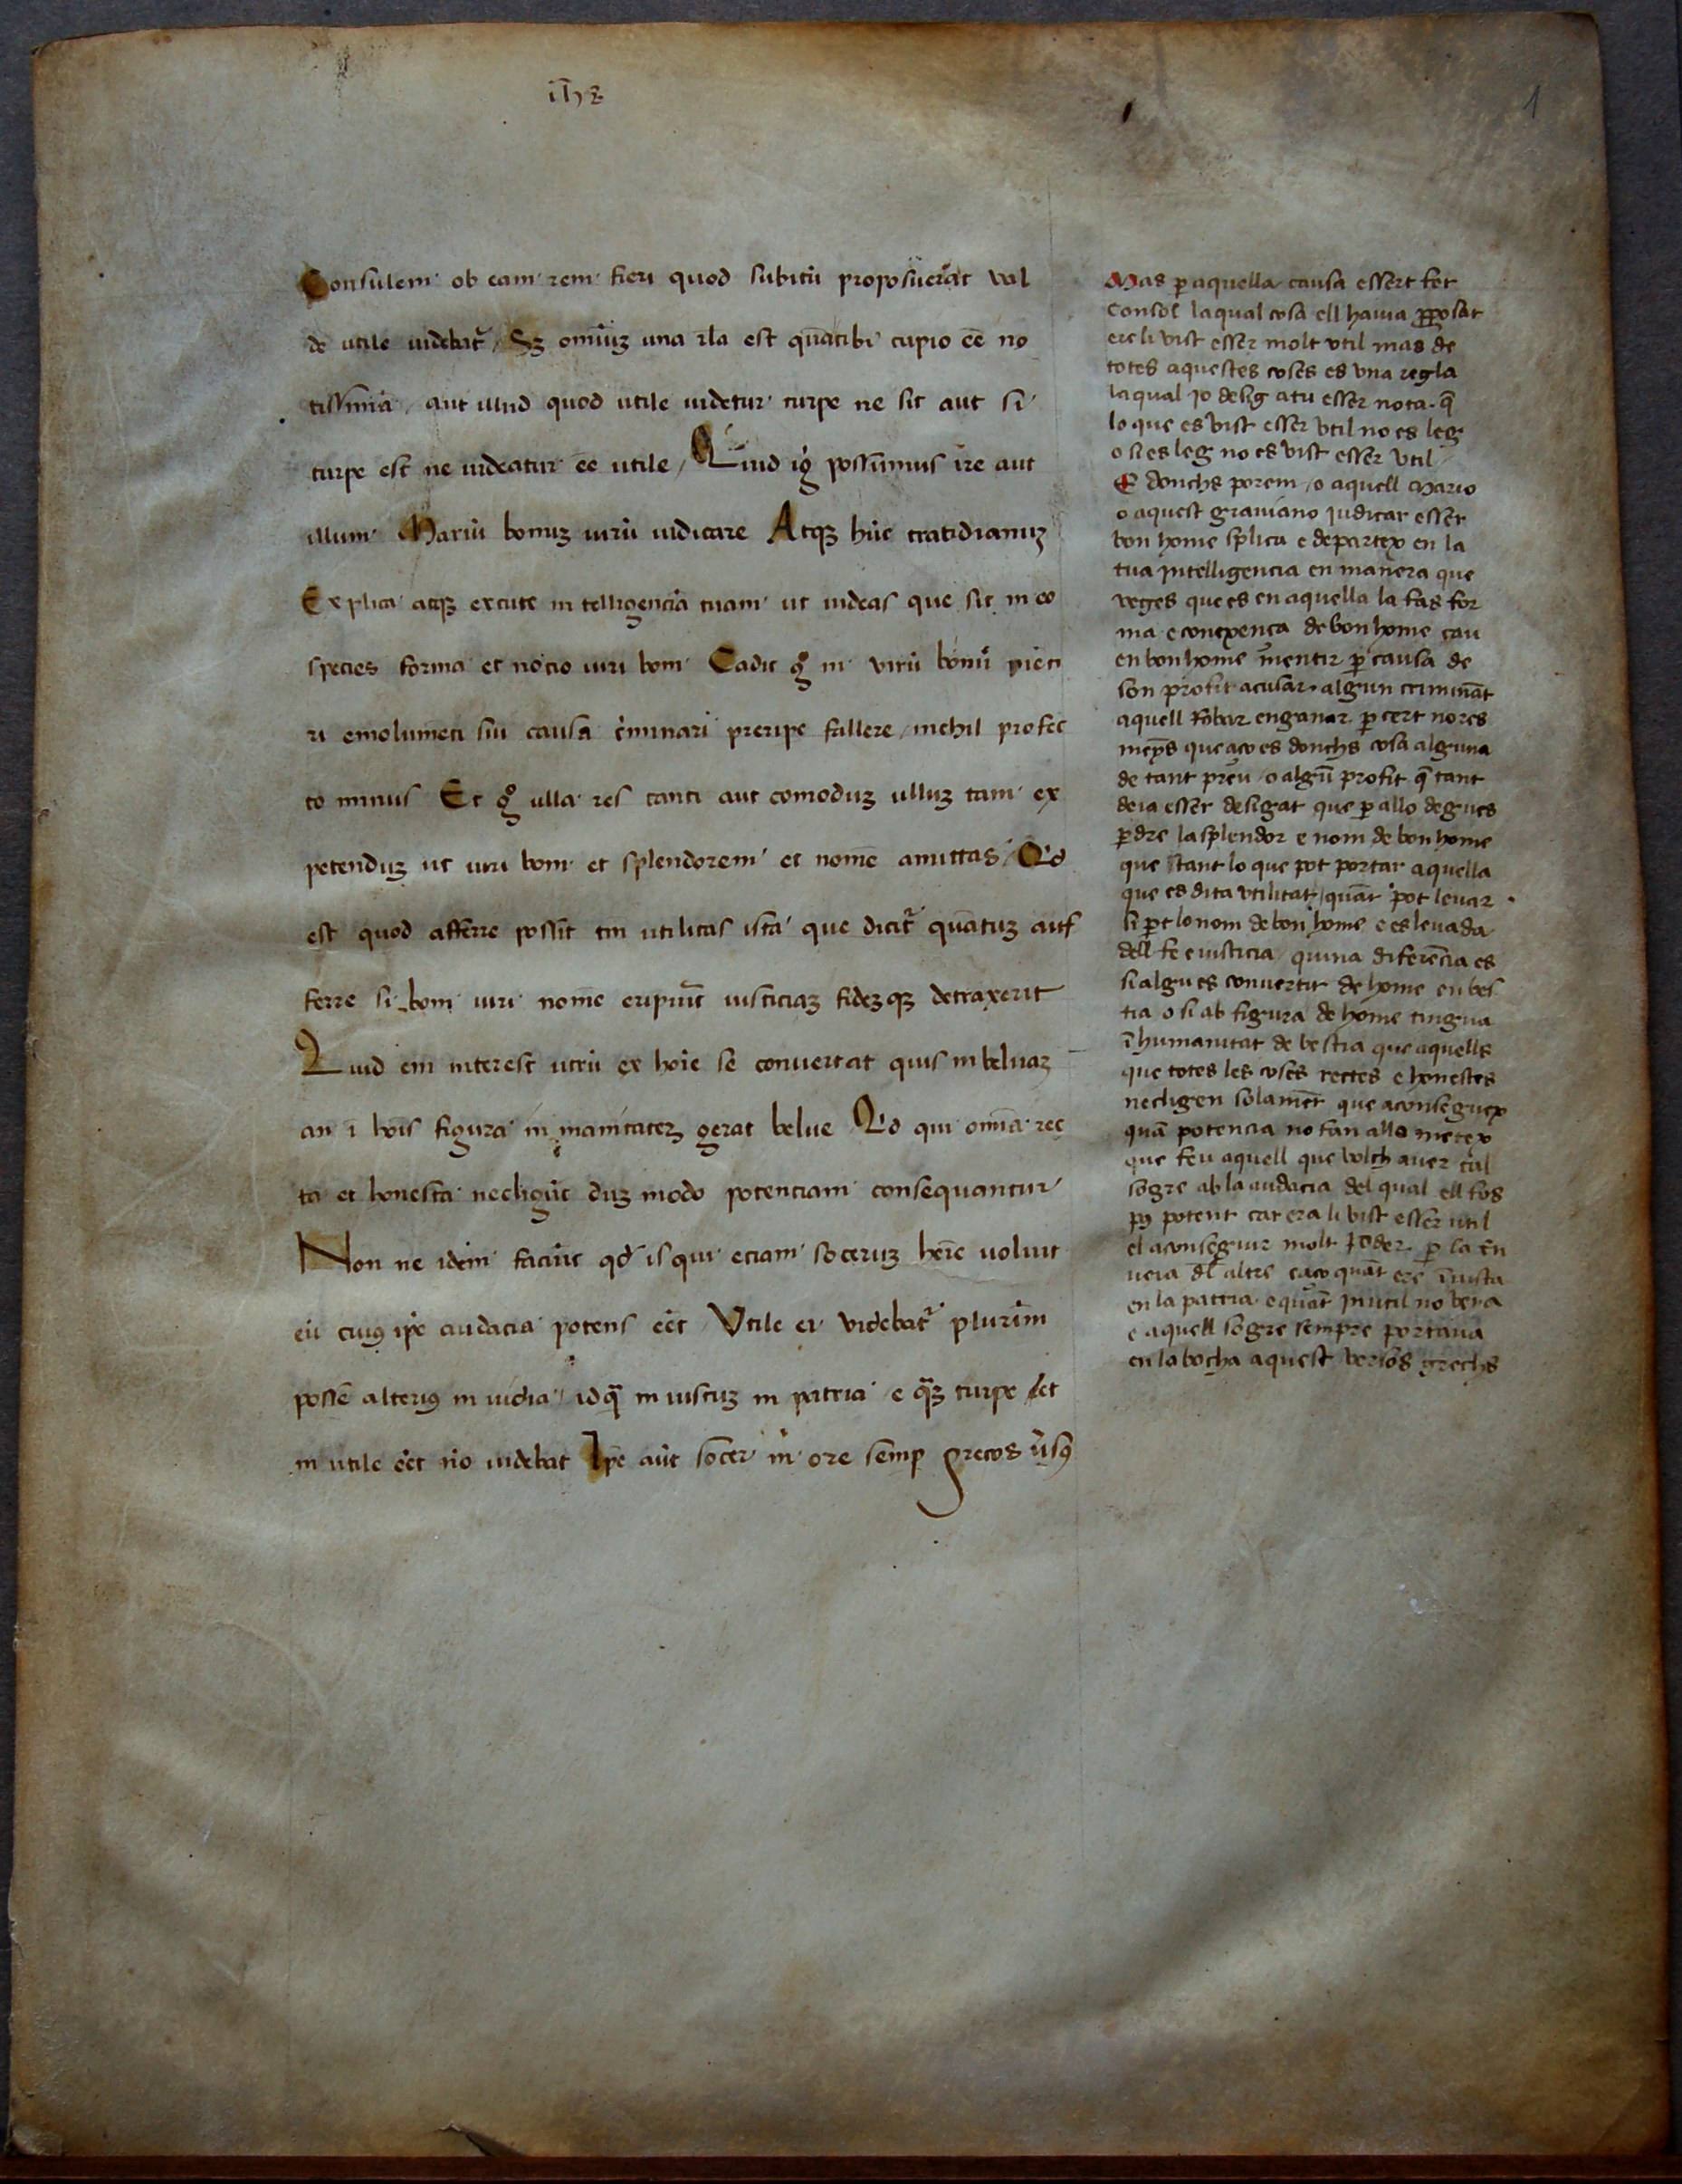 ıh̅s
1
Consulem ob eam rem fieri quod subitu̅ proposuerat val
de utile uidebat̃ / Sꝫ om̅iuꝫ una r̃la est qua̅ tibi cupio ee̅ no
tissima̅ / aut illud quod utile uidetur turpe ne sit aut si
turpe est ne uideatur ee̅ utile / Quid igͥ possumus ire aut
illum Mariu̅ bonuꝫ uiru̅ iudicare Atqꝫ hu̅c tratidianuꝫ
Explica atqꝫ excute in telligencia̅ tuam ut uideas que sit in eo
species forma et nocio uiri boni Cadit gͦ in viru̅ bonu̅ me̅ti
ri emolume̅ti sui causa c̃minari preripe fallere / nichil profec
to minus Et gͦ ulla res tanti aut comoduꝫ ulluꝫ tam ex
petenduꝫ ut uiri boni et splendorem et nome̅ amittas / Qͥd
est quod afferre possit tm̅ utilitas ista que dicit̃ qua̅tuꝫ auf
ferre si boni uiri nome̅ eripuit̃ iusticiaꝫ fideꝫqꝫ detraxerit
Quid em̅ interest utru̅ ex ho̅ie se convertat quis in beluaꝫ
an i̅ ho̅is figura in manitateꝫ gerat belue Qͥd qui omia̅ rec
ta et honesta necligu̅t duꝫ modo potentiam consequantur
Non ne idem faciu̅t qd̅ is qui etiam soceruꝫ he̅re uoluit
eu̅ cuiꝰ ip̅e audacia potens ee̅t / Utile ei videbat̃ plurim̅
posse̅ alteriꝰ in uidia / id q̃ in iustuꝫ in patria e q̃ꝫ turpe et
in utile ee̅t no̅ uidebat Ip̅e au̅t socer in ore semp̲ grecos ṽsꝰ
Mas p̲ aquella causa essert fet
Consol laqual cosa ell hauia p̲posat
ere li vist esser molt vtil mas de
totes aquestes coses es vna regla
laqual jo desig atu esser nota q̅
lo que es vist esser vtil no es leg
o si es leg no es vist esser vtil
E donchs porem / o aquell Mario
o aquest graniano judicar esser
bon home splica e departex en la
tua jntelligencia en manera que
veges que es en aquella la fas for
ma e conexença de bon home cau
en bon home me̅ntir p̲ causa de
son profit acusar algun crimināt
aquell robar enganar p̲ cert no res
meys que aço es donchs cosa alguna
de tant preu / o algu̅ profit q̅ tant
deia esser desigat que p̲ allo degues
p̲dre la splendor e nom de bon home
que stant lo que pot portar aquella
que es dita vtilitat / qua̅t pot leuar
si p̲t lo nom de bon home e es leuada
dell fe e iusticia / quina difere̅cia es
si algu es conuertit de home en bes
tia o si ab figura de home tingua
i̅humanitat de bestia que aquells
que totes les coses rectes e honestes
necligen solame̅t que aconseguex
qua̅ potencia no fan allo metex
que feu aquell que volch auer tal
sogre ab la audacia del qual ell fos
pꝰ potent car era li vist esser util
el aconseguir molt poder p̲ la en
ueia d̅l altre e aço qua̅t ere i̅iusta
en la patria e qua̅t jnutil no veya
e aquell sogre sempre portaua
en la bocha aquest versos grechs